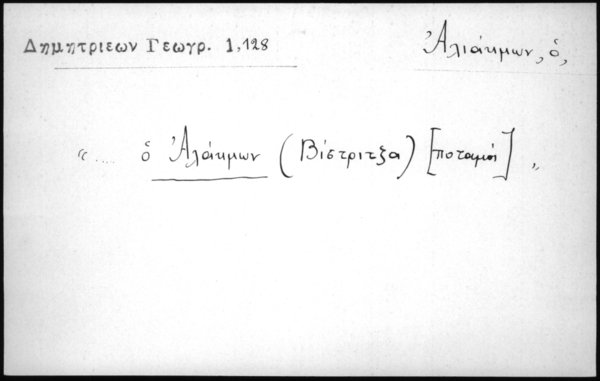 Δημητριεων Γεωγρ. 1,128
Ἀλιάκμων, ὁ,
“.... ὁ Ἀλάκμων (Βίστριτζα) [ποταμόι] „